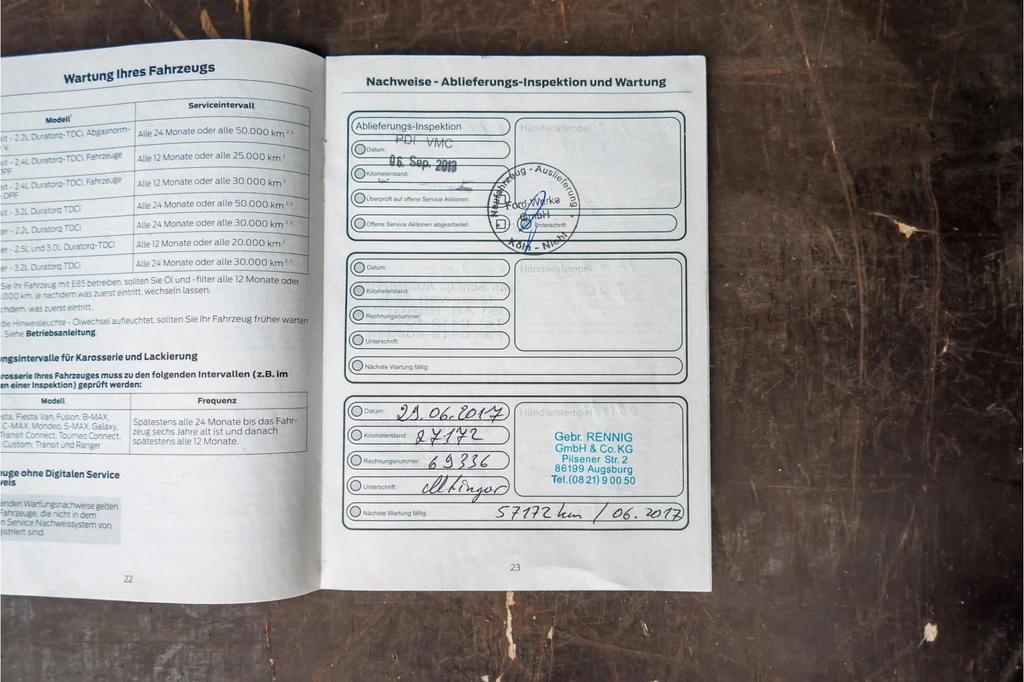 Wartung Ihres Fahrzeugs
Serviceintervall
Modell¹
sit - 2.2L Duratorq-TDCi, Abgasnorm-
V
Alle 24 Monate oder alle 50.000 km ²,³
sit - 2.4L Duratorq-TDCi, Fahrzeuge
DPF
Alle 12 Monate oder alle 25.000 km ²
sit - 2.4L Duratorq-TDCi, Fahrzeuge
DPF
Alle 12 Monate oder alle 30.000 km ²
sit - 3.2L Duratorq TDCi
Alle 24 Monate oder alle 50.000 km
- 2.2L Duratorq TDCi
Alle 24 Monate oder alle 30.000 km
- 2.5L und 3.0L Duratorq-TDCi
Alle 12 Monate oder alle 20.000 km ²
- 3.2L Duratorq TDCi
Alle 24 Monate oder alle 30.000 km
Sie Ihr Fahrzeug mit E85 betreiben, sollten Sie Öl und -filter alle 12 Monate oder
.000 km, je nachdem was zuerst eintritt, wechseln lassen.
chdem, was zuerst eintritt.
die Hinweisleuchte - Ölwechsel aufleuchtet, sollten Sie Ihr Fahrzeug früher warten
. Siehe Betriebsanleitung
ngsintervalle für Karosserie und Lackierung
rosserie Ihres Fahrzeuges muss zu den folgenden Intervallen (z.B. im
en einer Inspektion) geprüft werden:
Modell
Frequenz
sta, Fiesta Van, Fusion, B-MAX,
C-MAX, Mondeo, S-MAX, Galaxy,
Transit Connect, Tourneo Connect,
Custom, Transit und Ranger
Spätestens alle 24 Monate bis das Fahr-
zeug sechs Jahre alt ist und danach
spätestens alle 12 Monate.
uge ohne Digitalen Service
eis
enden Wartungsnachweise gelten
Fahrzeuge, die nicht in dem
n Service Nachweissystem von
gistriert sind.
22
Nachweise - Ablieferungs-Inspektion und Wartung
Ablieferungs-Inspektion
Händlerstempel
PDI VMC
Datum:
06. Sep. 2013
Kilometerstand:
Überprüft auf offene Service Aktionen:
Offene Service Aktionen abgearbeitet:
Unterschrift:
Neufahrzeug - Auslieferung
Ford-Werke
GmbH
Köln - Niehl
Datum:
Händlerstempel
Kilometerstand:
Rechnungsnummer:
Unterschrift:
Nächste Wartung fällig:
Datum: 29.06.2017
Händlerstempel
Kilometerstand: 27172
Rechnungsnummer: 69336
Unterschrift:
Gebr. RENNIG
GmbH & Co. KG
Pilsener Str. 2
86199 Augsburg
Tel. (08 21) 9 00 50
Nächste Wartung fällig: 57172 km / 06.2017
23